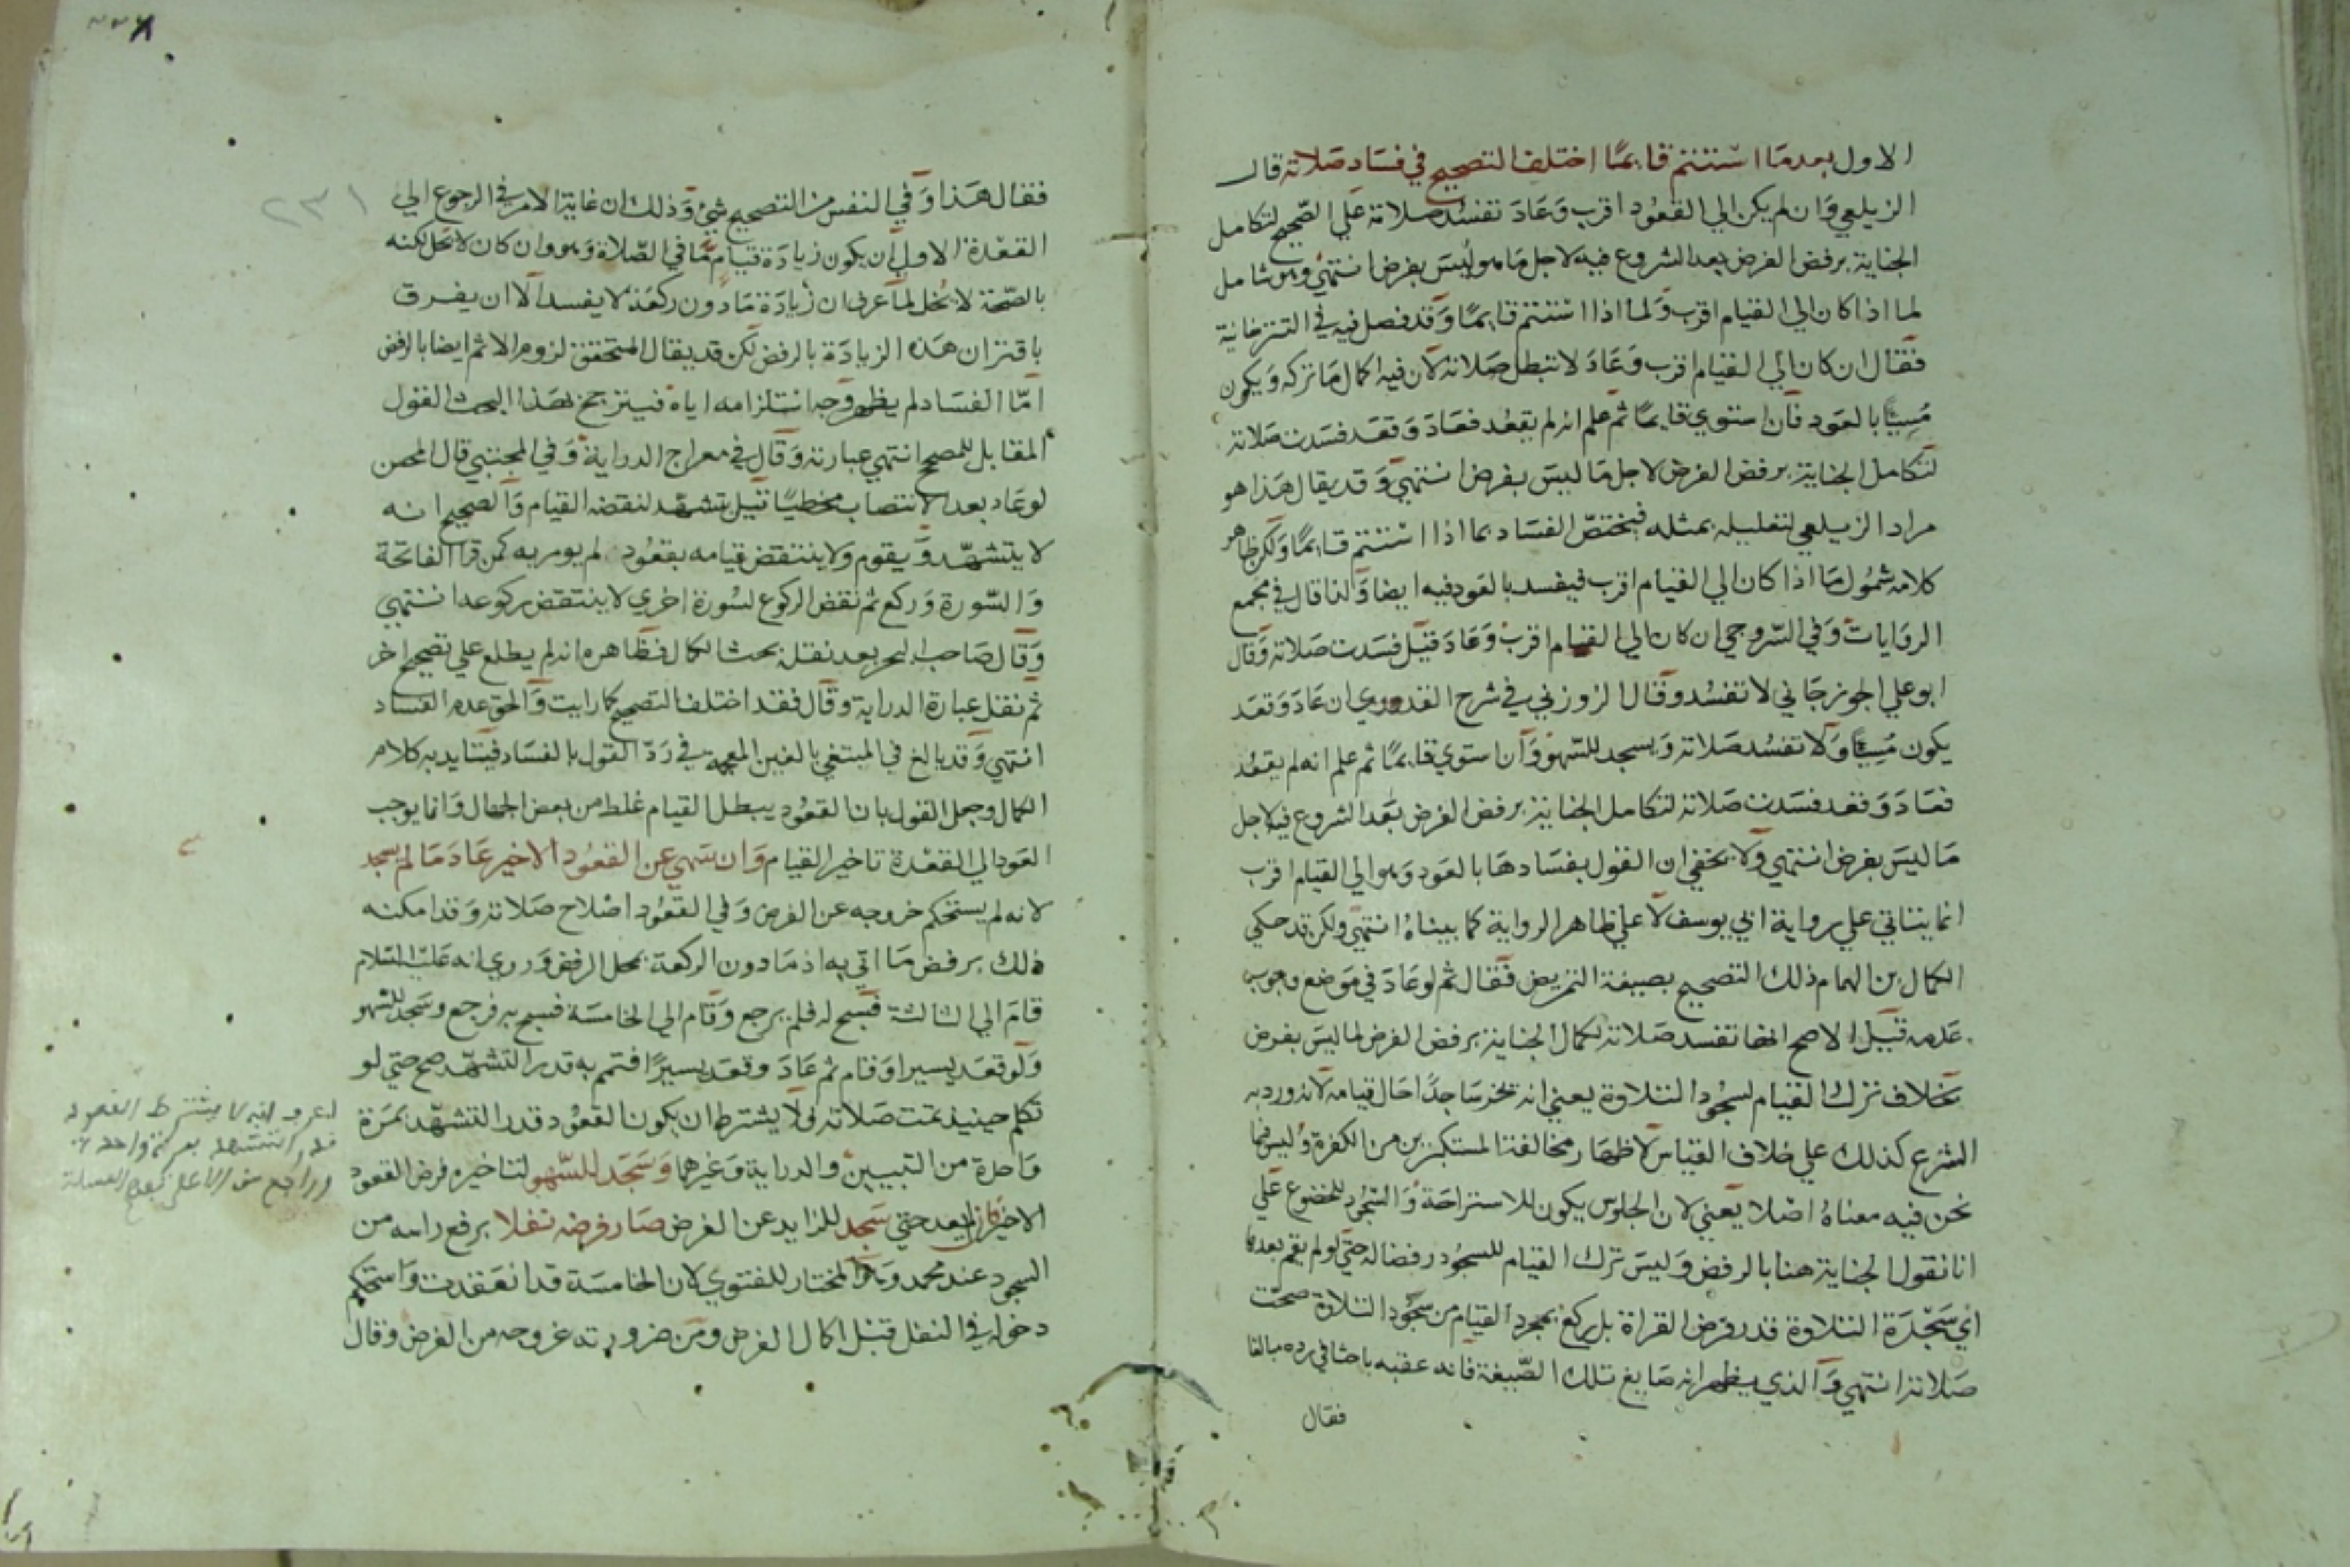 الاول بعدما استتم قايمًا اختلف التصحيح في فساد صلاته قال
الزيلعي وان لم يكن الي القعود اقرب وعاد تفسد صلاته علي الصحيح لتكامل
الجناية برفض الفرض بعد الشروع فيه لاجل ما هو ليس بفرض انتهي وهو شامل
لما اذا كان الي القيام اقرب ولما اذا استتم قايمًا وقد فصل فيه في التترخانية
فقال ان كان الي القيام اقرب وعاد لا تبطل صلاته لان فيه اكمال ما تركه ويكون
مسيًا بالعود فان استوي قايمًا ثم علم انه لم يقعد فعاد وقعد فسدت صلاته
لتكامل الجناية برفض الفرض لاجل ما ليس بفرض انتهي وقد يقال هذا هو
مراد الزيلعي لتعليله بمثله فيختص الفساد بما اذا استتم قايمًا ولكن ظاهر
كلامه شمول ما اذا كان الي القيام اقرب فيفسد بالعود فيه ايضا ولذا قال في مجمع
الروايات وفي السروجي ان كان الي القيام اقرب وعاد قيل فسدت صلاته وقال
ابو علي الجوزجاني لا تفسد وقال الزوزني في شرح القدوري ان عاد وقعد
يكون مسيًا ولا تفسد صلاته ويسجد للسهو وان استوي قايمًا ثم علم انه لم يقعد
فعاد وقعد فسدت صلاته لتكامل الجناية برفض الفرض بعد الشروع فيه لاجل
ما ليس بفرض انتهي ولا يخفي ان القول بفسادها بالعود وهو الي القيام اقرب
انما يتاتي علي رواية ابي يوسف لا علي ظاهر الرواية كما بيناه انتهي ولكن قد حكي
الكمال بن الهمام ذلك التصحيح بصيغة التمريض فقال ثم لو عاد في موضع وجوب
عدمه قيل الاصح انها تفسد صلاته لكمال الجناية برفض الفرض لما ليس بفرض
بخلاف ترك القيام لسجود التلاوة يعني انه يخر ساجدًا حال قيامه لانه ورد به
الشرع كذلك علي خلاف القياس لاظهار مخالفة المستكبرين من الكفرة وليس فيما
نحن فيه معناه اصلا يعني لان الجلوس يكون للاستراحة والسجود للخضوع علي
انا نقول الجناية هنا بالرفض وليس ترك القيام للسجود رفضا له حتي لو لم يقم بعدها
اي سجدة التلاوة قدر فرض القراة بل ركع بمجرد القيام من سجود التلاوة صحت
صلاته انتهي والذي يظهر انه صايغ تلك الصيغة فانه عقبه باحثا في رده مبالغا
فقال
فقال هذا وفي النفس من التصحيح شيء وذلك ان غاية الامر في الرجوع الي
القعدة الاولي ان يكون زيادة قيام ما في الصلاة وهو وان كان لا يحل لكنه
بالصحة لا يخل لما عرف ان زيادة ما دون ركعة لا يفسد الا ان يفرق
باقتران هذه الزيادة بالرفض لكن قد يقال المتحقق لزوم الاثم ايضا بالرفض
امّا الفساد لم يظهر وجه استلزامه اياه فيترجح بهذا البحث القول
المقابل للمصحح انتهي عبارته وقال في معراج الدراية وفي المجتبي قال المحسن
لو عاد بعد الانتصاب مخطيًا قيل يتشهد لنقضه القيام والصحيح انه
لا يتشهّد ويقوم ولا ينتقض قيامه بقعود لم يومر به كمن قرا الفاتحة
والسورة وركع ثم نقض الركوع لسورة اخري لا ينتقض ركوعه انتهي
وقال صاحب البحر بعد نقله بحث الكمال فظاهره انه لم يطلع علي تصحيح اخر
ثم نقل عبارة الدراية وقال فقد اختلف التصحيح كما رايت والحق عدم الفساد
انتهي وقد بالغ في المبتغي بالغين المعجمة في ردّ القول بالفساد فيتايد به كلام
الكمال وجعل القول بان القعود يبطل القيام غلط من بعض الجهال وانما يوجب
العود الي القعدة تاخير القيام وان سهي عن القعود الاخير عاد ما لم يسجد
لانه لم يستحكم خروجه عن الفرض وفي القعود اصلاح صلاته وقد امكنه
ذلك برفض ما اتي به اذ ما دون الركعة بمحل الرفض وروي انه عليه السلام
قام الي الثالثة فسبح له فلم يرجع وقام الي الخامسة فسبح به فرجع وسجد للسهو
ولو قعد يسيرا وقام ثم عاد وقعد يسيرًا فتمم به قدر التشهّد صح حتي لو
تكلم حينيذ تمت صلاته ولا يشترط ان يكون القعود قدر التشهّد بمرة
واحدة من التبيين والدراية وغيرهما وسجد للسّهو لتاخيره فرض القعود
الاخير فان لم يعد حتي سجد للزايد عن الفرض صار فرضه نفلا برفع راسه من
السجود عند محمد وهو المختار للفتوي لان الخامسة قد انعقدت واستحكم
دخوله في النفل قبل اكمال الفرض ومن ضرورته خروجه من الفرض وقال
٢٣١
اعرف انه لا يشترط القعود
قدر التشهد بمرة واحدة